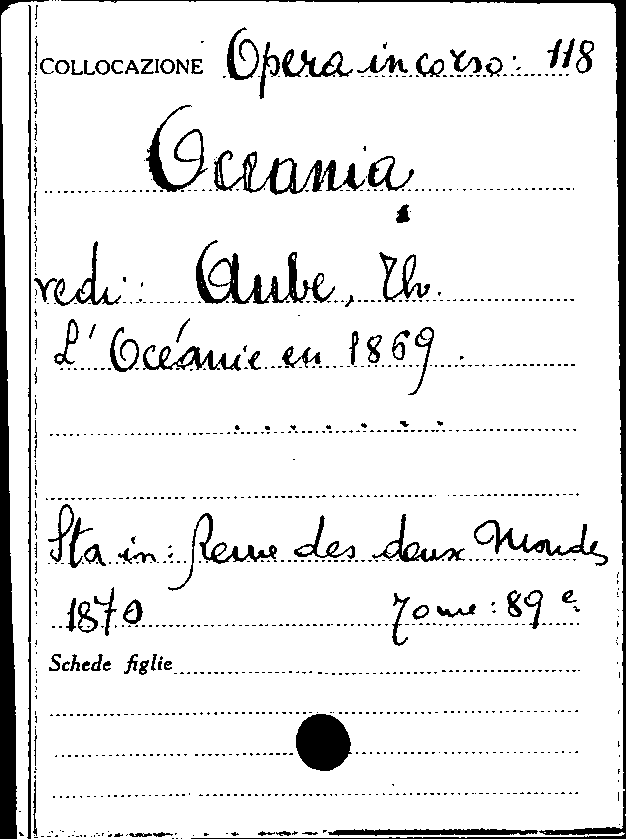 COLLOCAZIONE Opera in corso: 118
Oceania
vedi: Aube, Th.
L'Océanie en 1869.
.......
Sta in: Revue des deux Mondes
1870 Tome: 89e.
Schede figlie